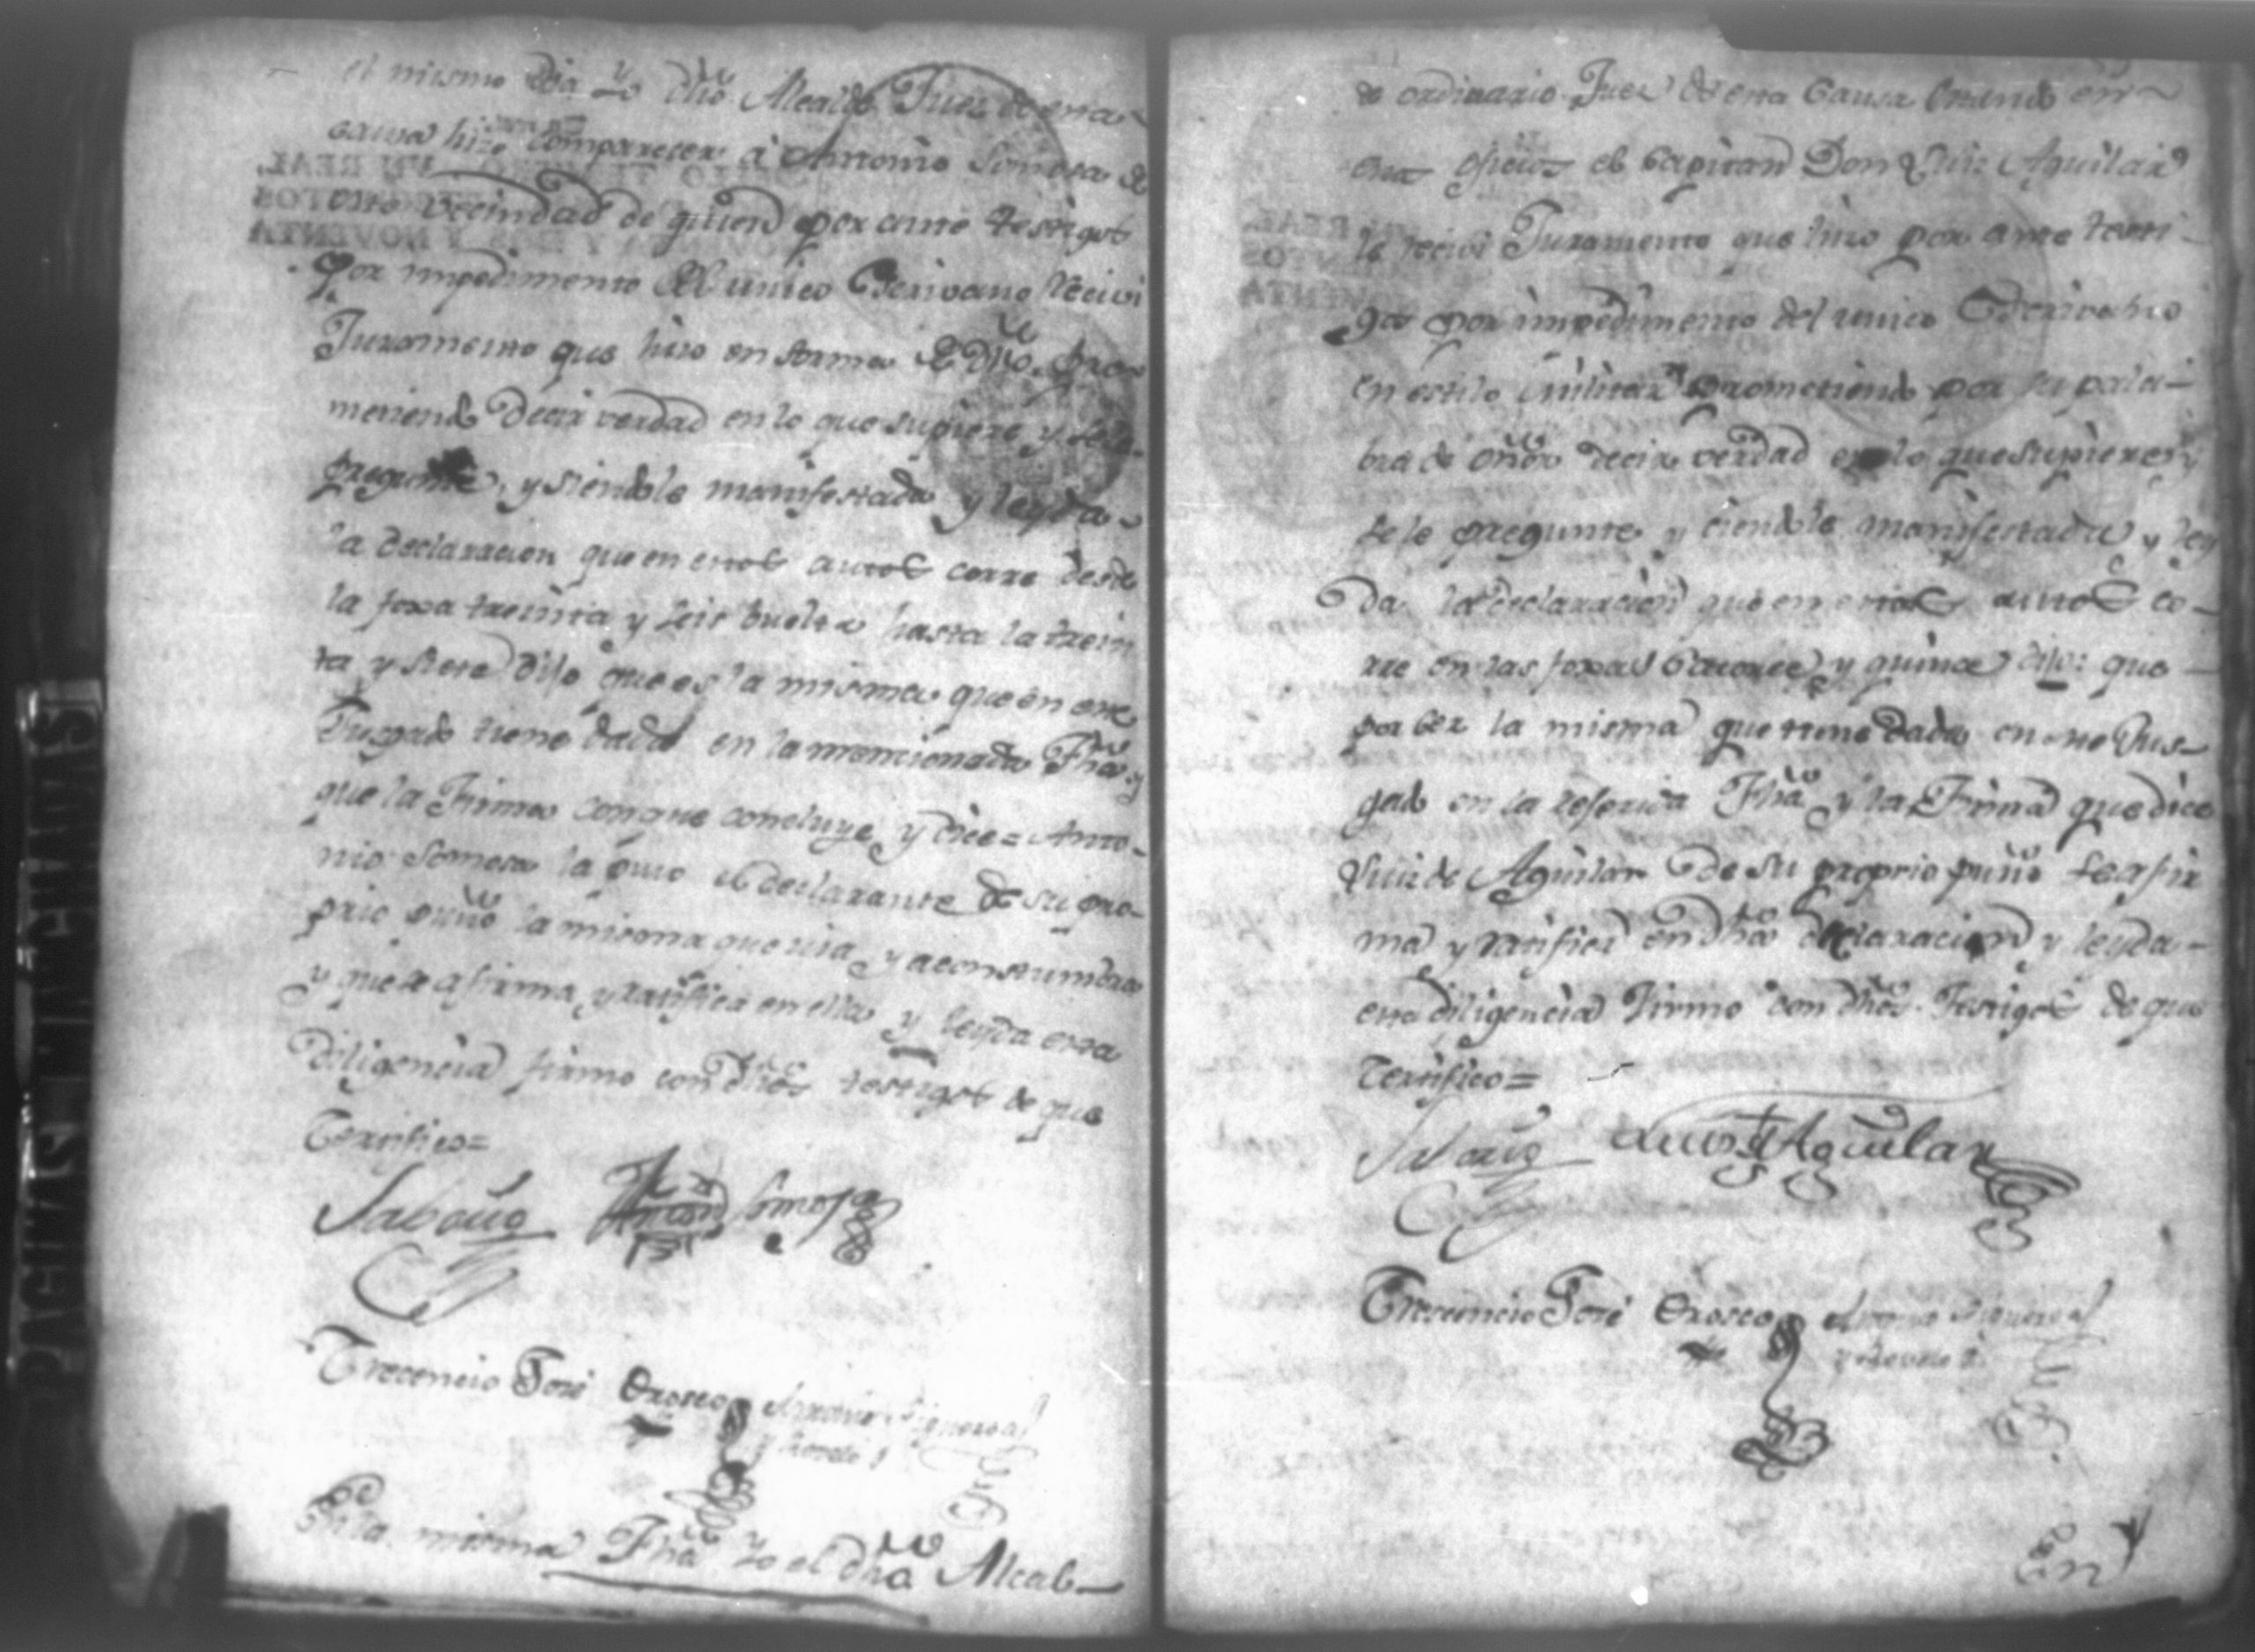 el mismo dia Yo dho Alcalde Juez de esta
causa hize comparecer à Antonio Somosa de
esta vecindad de quien por ante testigos
Por impedimento del unico Escrivano Recivi
Juramento que hizo en forma de dro pro
metiendo decir verdad en lo que supiere y se le
pregunte, y siendole manifestada y leyda
la declaracion que en estos autos corre desde
la foxa treinta y seis buelta hasta la trein
ta y siete dijo que es la misma que en este
Juzgado tiene dada en la mencionada Fha y
que la Firma con que concluye, y dice = Anto-
nio Somosa la puso el declarante de su pro-
prio puño la misma que usa, y acostumbra
y que se afirma, y ratifica en ella y leyda esta
diligencia firmo con dhos testigos de que
Certifico =
Antonio Somosa
Crecencio José Orosco
En la misma Fha Yo el dho Alcal-
de ordinario Juez de esta Causa
el Capitan Don Luis Aguilar
le recivi Juramento que hizo por ante testi-
gos por impedimento del unico Escrivano
en estilo militar prometiendo por su pala-
bra de onor decir verdad en lo que supiere y
se le pregunte y ciendole manifestada y ley
da la declaracion que en estos autos co-
rre en las foxas Catorce y quince dijo: que
por ser la misma que tiene dada en este Jus-
gado en la referida Fha y la Firma que dice
Luis de Aguilar de su proprio puño se afir
ma y ratifica en dha declaracion y leyda
esta diligencia Firmo con dhos Testigos de que
Certifico =
Luis de Aguilar
Crecencio José Orosco
PAGINAS MANCHADAS